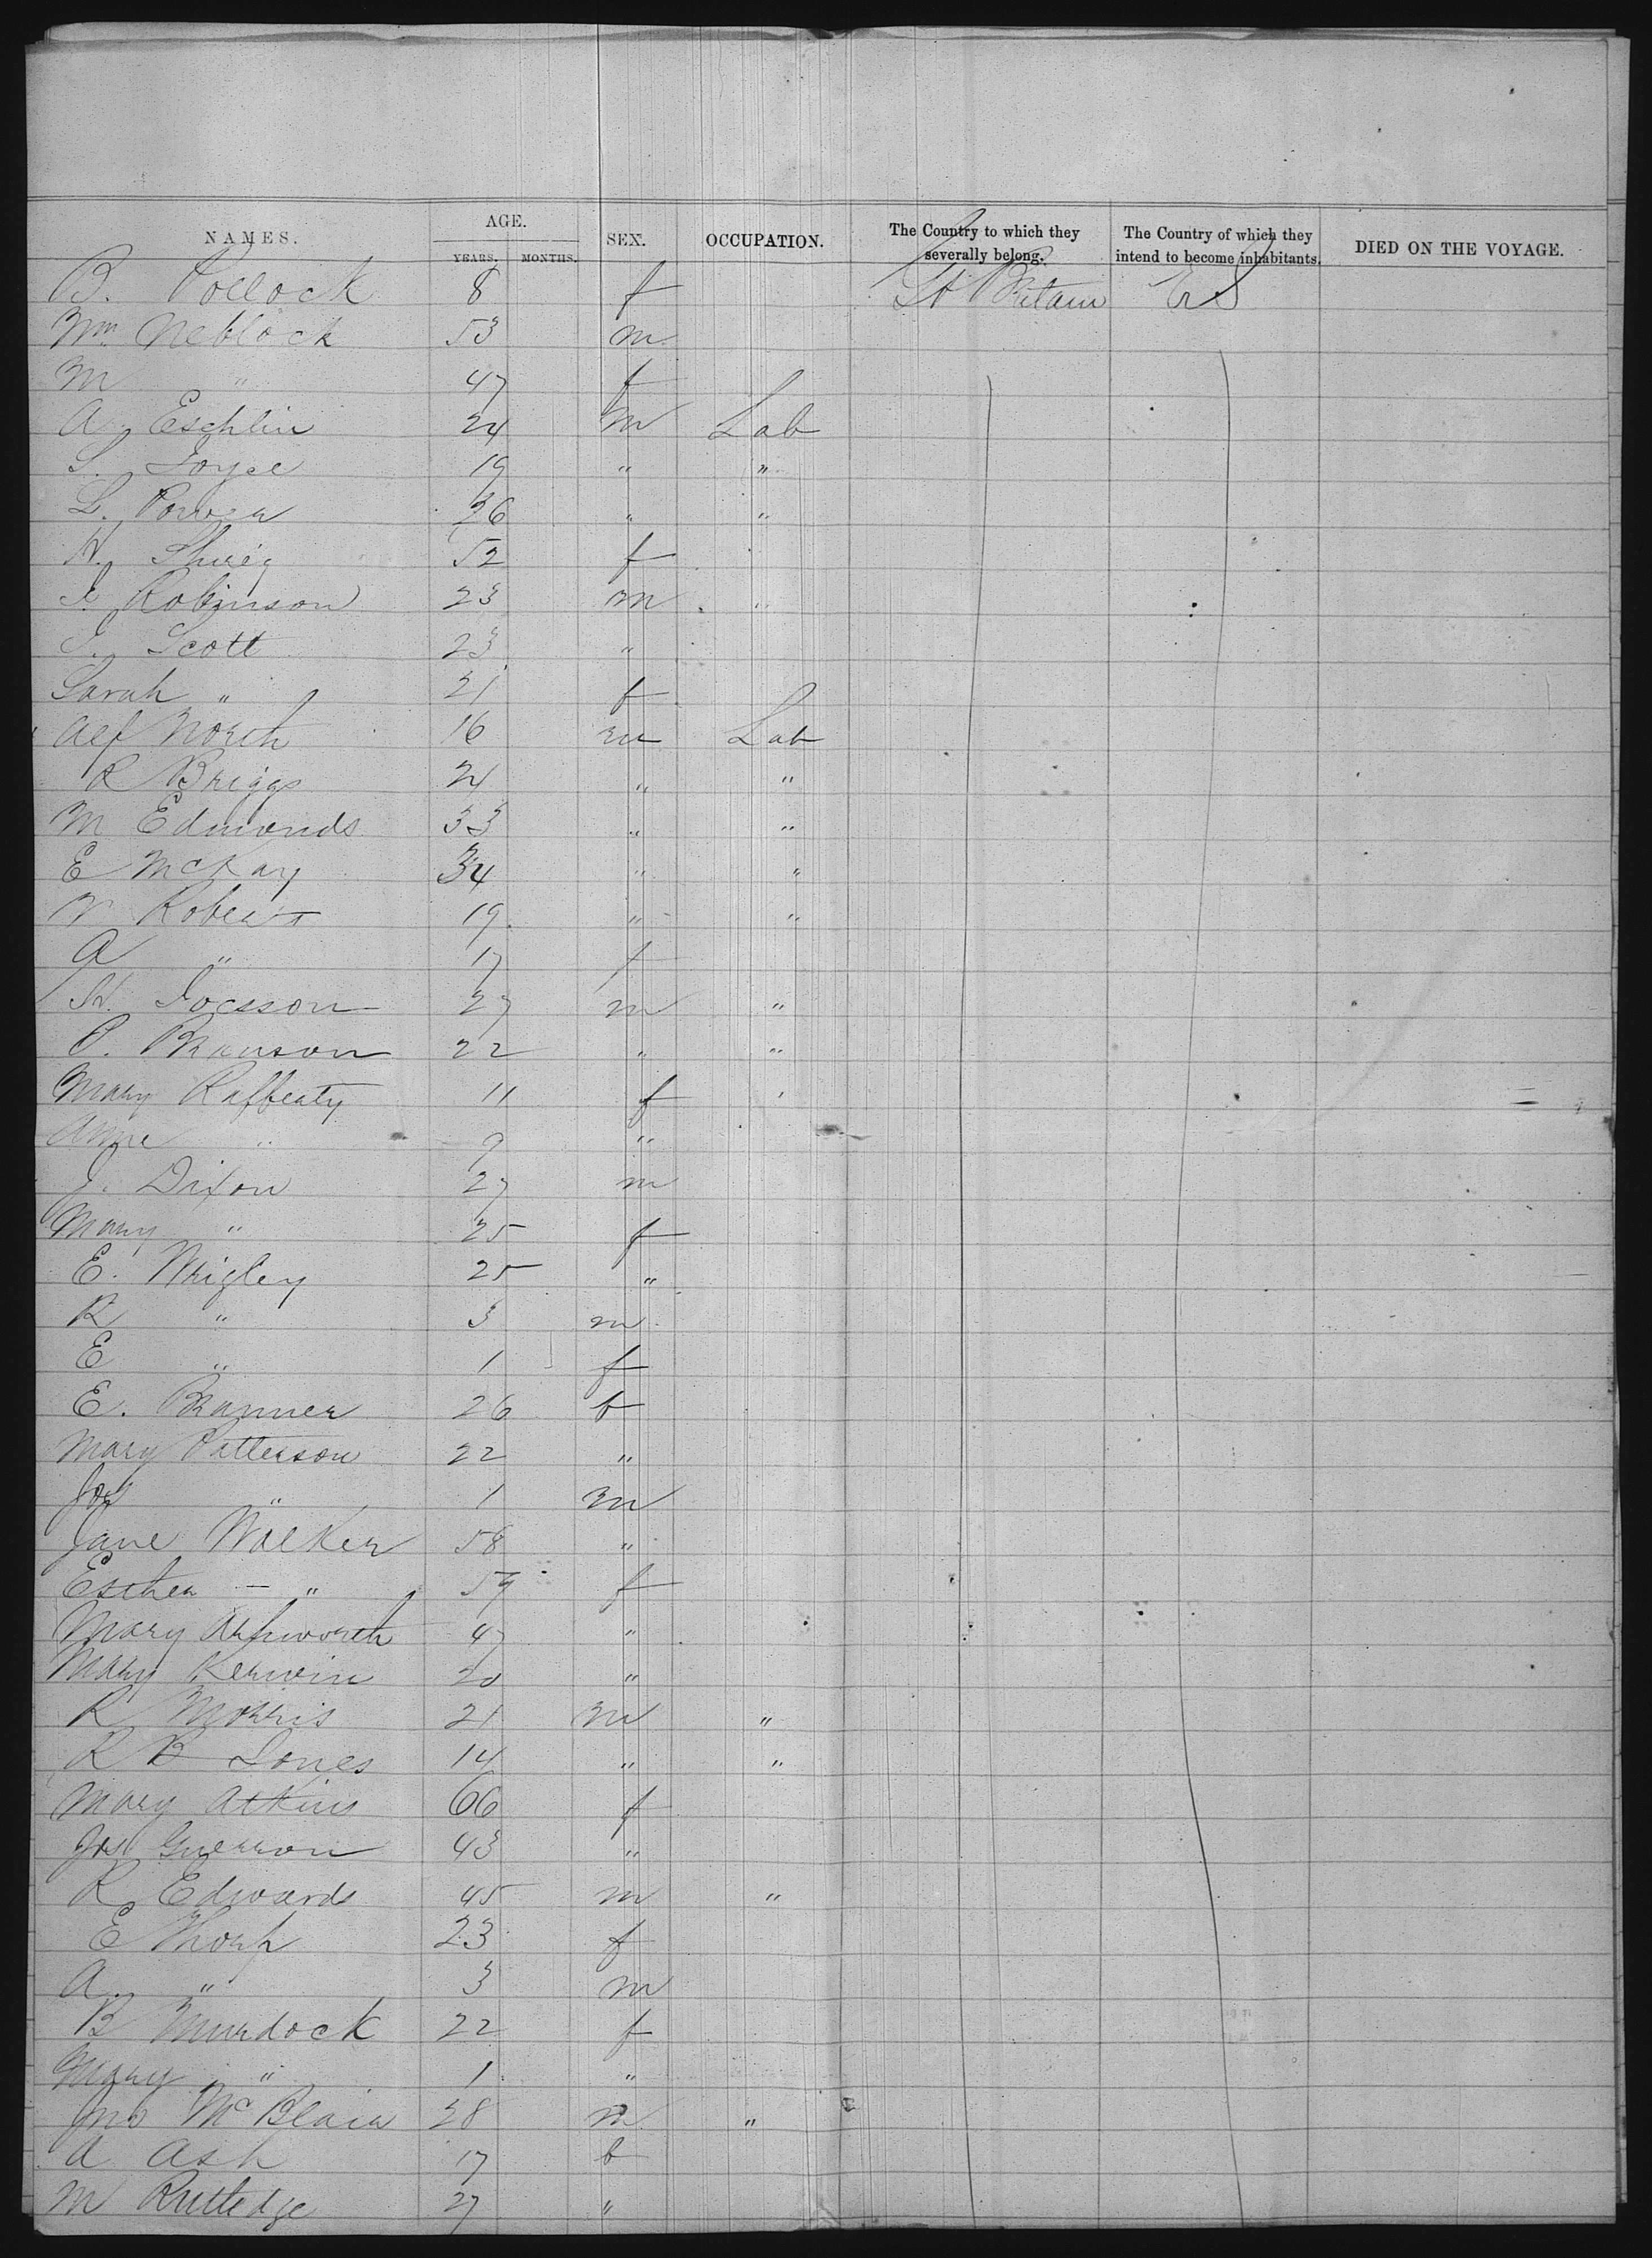 NAMES. AGE. YEARS. MONTHS. SEX. OCCUPATION. The Country to which they severally belong. The Country of which they intend to become inhabitants. DIED ON THE VOYAGE.
B. Pollock 8 f Gt Britain US
Wm Neblock 53 m
M " 47 f
A. Eschlin 24 m Lab
S. Joyce 19 " "
L. Power 26 " "
H. 52 f
J. Robinson 23 m "
J. Scott 23 "
Sarah " 21 f
Alf North 16 m Lab
R Briggs 24 " "
M Edmonds 33 " "
E McKay 34 " "
Robert 19 " "
A " 17 f
H. Jocsson 27 m "
P. Branson 22 " "
Mary Raffeaty 11 f
Anne " 9 "
J. Dixon 27 m
Mary " 25 f
E. Wrigley 25 "
R " 3 m
E " 1 f
E. Branner 26 f
Mary Patterson 22 "
Jos " 1 m
Jane Walker 58 "
Esther - " 59 f
Mary Ashworth 47 "
Mary Kerwin 20 "
R Morris 21 m "
R B Jones 14 " "
Mary Atkins 66 f
Jos Guerron 43 "
R Edwards 45 m "
E Thorp 23 f
A. " 3 m
B Murdock 22 f
Mary " 1 "
Jno McBlair 28 m "
A Ash 17 f
M Rutledge 27 "